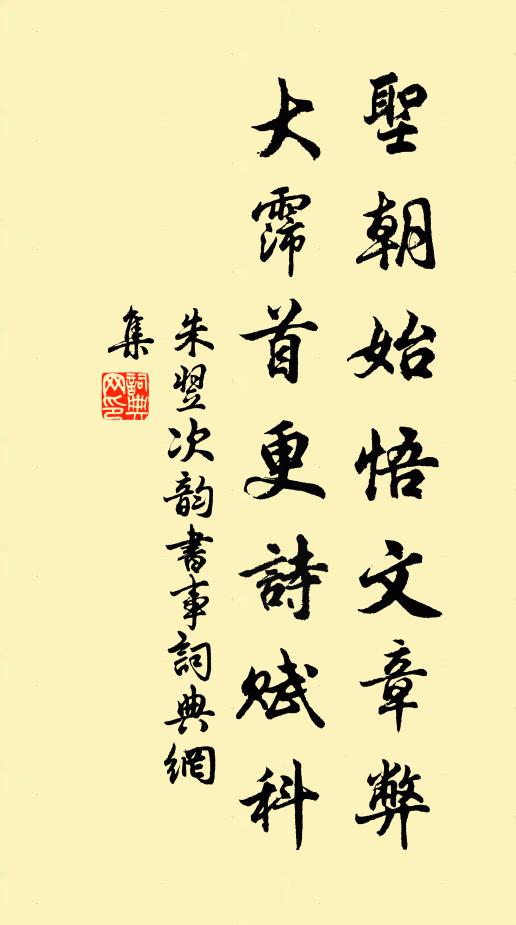 聖朝始悟文章弊
大霈首更詩賦科
朱翌次韵書事詞典網
集
詞典網印